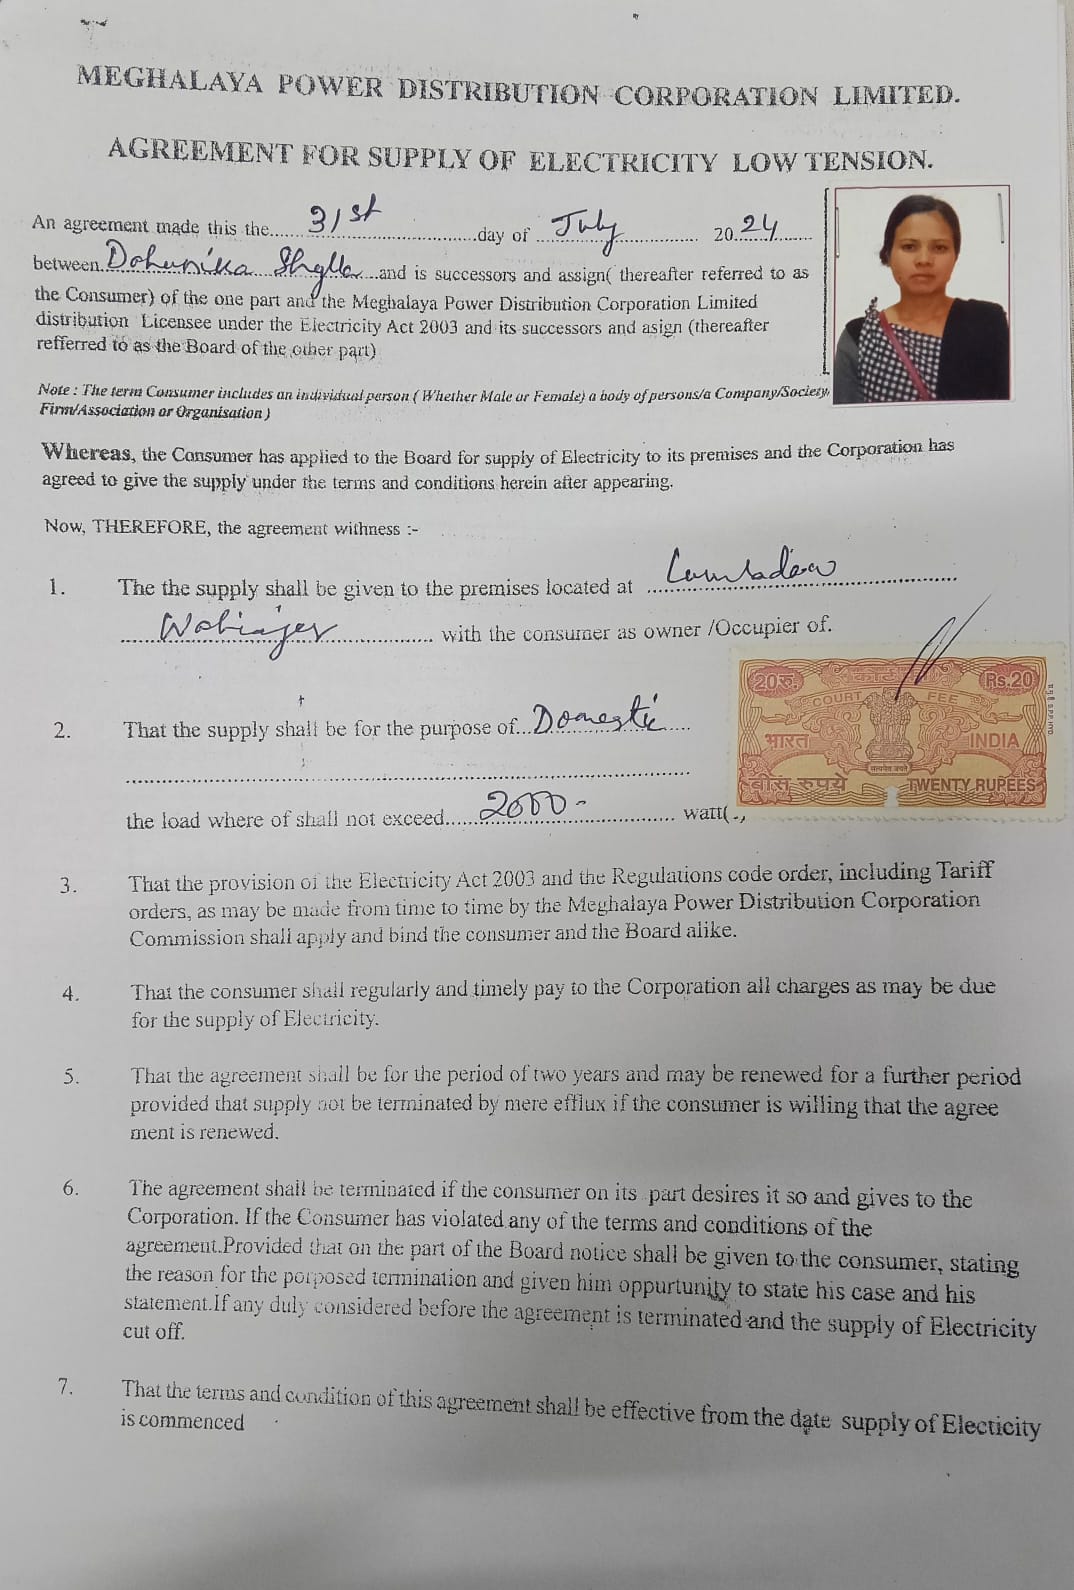 MEGHALAYA POWER DISTRIBUTION CORPORATION LIMITED.
AGREEMENT FOR SUPPLY OF ELECTRICITY LOW TENSION.
An agreement made this the......31st..............................day of ...July............... 20.24.......
between.............. Shylla...and is successors and assign( thereafter referred to as
the Consumer) of the one part and the Meghalaya Power Distribution Corporation Limited
distribution Licensee under the Electricity Act 2003 and its successors and asign (thereafter
refferred to as the Board of the other part)
Note : The term Consumer includes an individual person ( Whether Male or Female) a body of persons/a Company/Society,
Firm/Association or Organisation )
Whereas, the Consumer has applied to the Board for supply of Electricity to its premises and the Corporation has
agreed to give the supply under the terms and conditions herein after appearing.
Now, THEREFORE, the agreement withness :-
1. The the supply shall be given to the premises located at ....................................
Wahiajer.................. with the consumer as owner /Occupier of.
20रु. कोर्ट फीस Rs.20
COURT FEE
भारत INDIA
सत्यमेव जयते
बीस रुपये TWENTY RUPEES
2. That the supply shall be for the purpose of...Domestic....
....................................................................................
the load where of shall not exceed......2000-................... watt(
3. That the provision of the Electricity Act 2003 and the Regulations code order, including Tariff
orders, as may be made from time to time by the Meghalaya Power Distribution Corporation
Commission shall apply and bind the consumer and the Board alike.
4. That the consumer shall regularly and timely pay to the Corporation all charges as may be due
for the supply of Electricity.
5. That the agreement shall be for the period of two years and may be renewed for a further period
provided that supply not be terminated by mere efflux if the consumer is willing that the agree
ment is renewed.
6. The agreement shall be terminated if the consumer on its part desires it so and gives to the
Corporation. If the Consumer has violated any of the terms and conditions of the
agreement.Provided that on the part of the Board notice shall be given to the consumer, stating
the reason for the porposed termination and given him oppurtunity to state his case and his
statement.If any duly considered before the agreement is terminated and the supply of Electricity
cut off.
7. That the terms and condition of this agreement shall be effective from the date supply of Electicity
is commenced